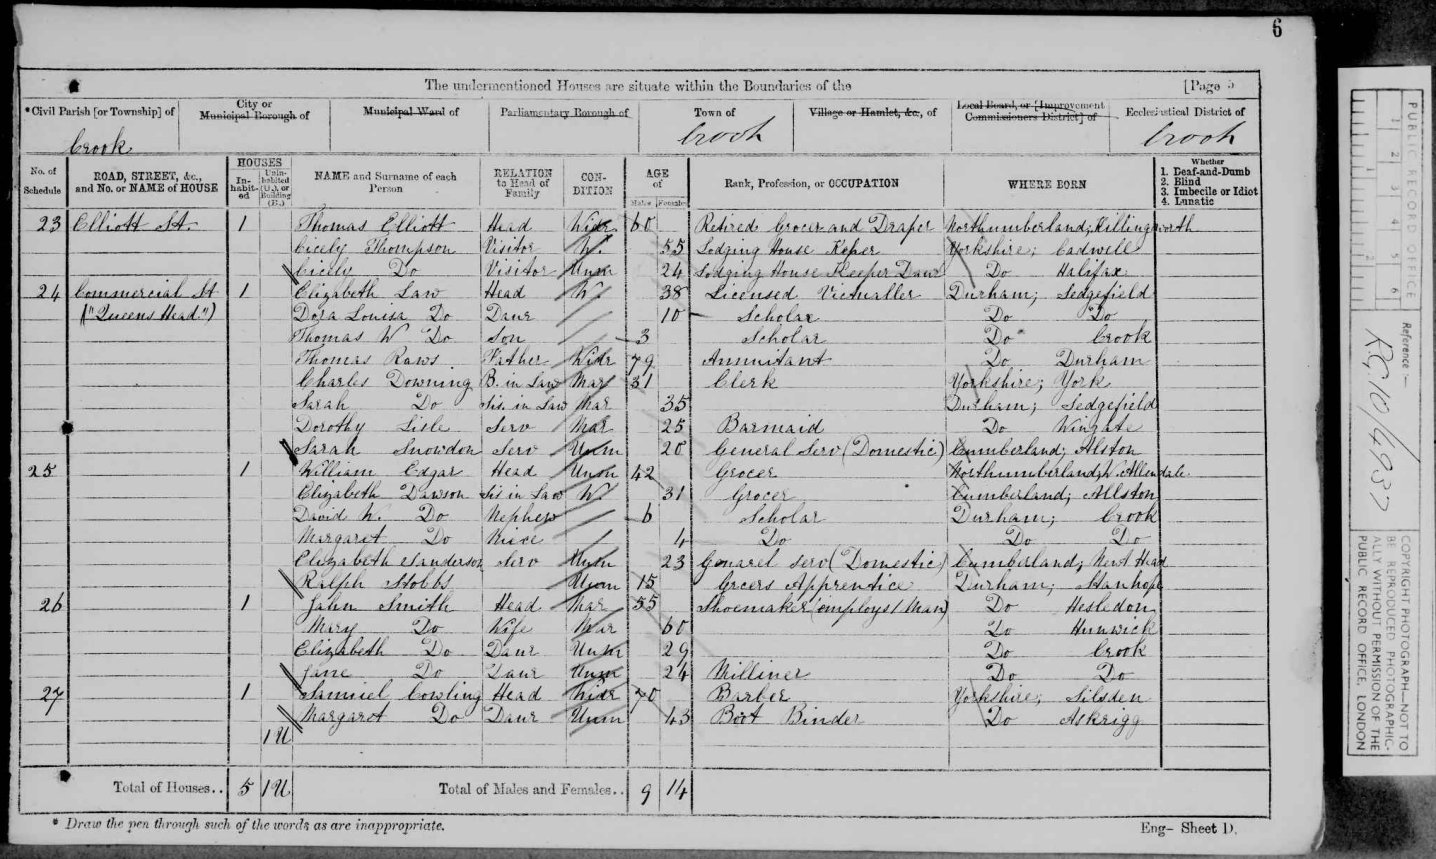 6
The undermentioned Houses are situate within the Boundaries of the [Page 5
*Civil Parish [or Township] of City or Municipal Borough of Municipal Ward of Parliamentary Borough of Town of Village or Hamlet, &c., of Local Board, or [Improvement Commissioners District] of Ecclesiastical District of
Crook Crook Crook
No. of Schedule ROAD, STREET, &c., and No. or NAME of HOUSE HOUSES In-habit-ed Unin-habited (U.), or Building (B.) NAME and Surname of each Person RELATION to Head of Family CON-DITION AGE of Males Females Rank, Profession, or OCCUPATION WHERE BORN Whether 1. Deaf-and-Dumb 2. Blind 3. Imbecile or Idiot 4. Lunatic
23 Elliott St. 1 Thomas Elliott Head Widr 60 Retired Grocer and Draper Northumberland; Killingworth
Cicely Thompson Visitor W. 55 Lodging House Keper Yorkshire; Cadwell
Cicely Do Visitor Unm 24 Lodging House Keeper Daur Do Halifax
24 Commercial St 1 Elizabeth Law Head W. 38 Licensed Victualler Durham; Sedgefield
("Queens Head") Dora Louisa Do Daur 10 Scholar Do Do
Thomas W Do Son 3 Scholar Do Crook
Thomas Raws Father Widr 79 Annuitant Do Durham
Charles Downing B. in Law Mar 31 Clerk Yorkshire; York
Sarah Do Sis. in Law Mar 35 Durham; Sedgefield
Dorothy Lisle Serv Mar 25 Barmaid Do Wingate
Sarah Snowdon Serv Unm 20 General Serv (Domestic) Cumberland; Alston
25 1 William Edgar Head Unm 42 Grocer Northumberland; W. Allendale
Elizabeth Dawson Sis in Law W. 31 Grocer Cumberland; Allston
David W. Do Nephew 6 Scholar Durham; Crook
Margaret Do Niece 4 Do Do Do
Elizabeth Sanderson Serv Unm 23 Genarel Serv (Domestic) Cumberland; Nent Head
Ralph Stobbs Unm 15 Grcers Apprentice Durham; Stanhope
26 1 John Smith Head Mar 55 Shoemaker (employs 1 Man) Do Hesledon
Mary Do Wife Mar 60 Do Hunwick
Elizabeth Do Daur Unm 29 Do Crook
Jane Do Daur Unm 24 Milliner Do Do
27 1 Samuel Cowling Head Widr 70 Barber Yorkshire; Silsden
Margaret Do Daur Unm 43 Boot Binder Do Askrigg
1U
Total of Houses.. 5 1U Total of Males and Females.. 9 14
* Draw the pen through such of the words as are inappropriate. Eng- Sheet D.
PUBLIC RECORD OFFICE
1 2 3 4 5 6
1 2
Reference:-
RG10/4937
COPYRIGHT PHOTOGRAPH—NOT TO
BE REPRODUCED PHOTOGRAPHIC-
ALLY WITHOUT PERMISSION OF THE
PUBLIC RECORD OFFICE, LONDON